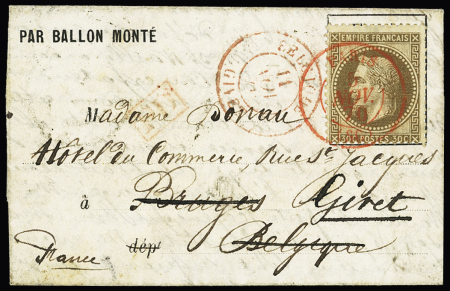 PAR BALLON MONTÉ
EMPIRE FRANÇAIS
30C POSTES 30C
PD
Madame Donau
Hôtel du Commerce, Rue St Jacques
à Bruges Givet
dép' Belgique
France